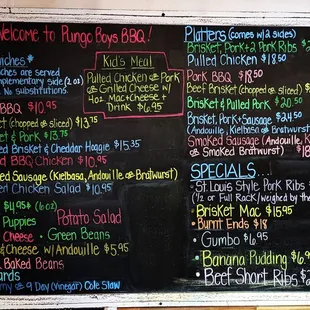 Welcome to Pungo Boys BBQ!
Kid's Meal
Pulled Chicken or Pork
or Grilled Cheese w/
4oz Mac+Cheese +
Drink $6.95
are served
side (2 oz)
No substitutions.
BBQ $10.95
(chopped or sliced) $13.75
& Pork $13.75
Brisket & Cheddar Hoagie $15.35
BBQ Chicken $10.95
Sausage (Kielbasa, Andouille or Bratwurst)
Chicken Salad $10.95
$4.95 (6 oz)
Puppies
Potato Salad
Cheese • Green Beans
Cheese w/ Andouille $5.95
Baked Beans
9 Day (Vinegar) Cole Slaw
Platters (comes w/ 2 sides)
Brisket, Pork + 2 Pork Ribs
Pulled Chicken $18.50
Pork BBQ $18.50
Beef Brisket (chopped or sliced)
Brisket & Pulled Pork $20.50
Brisket, Pork + Sausage $24.50
(Andouille, Kielbasa or Bratwurst)
Smoked Sausage (Andouille,
or Smoked Bratwurst)
SPECIALS...
St. Louis Style Pork Ribs
(1/2 or Full Rack/weighed by the
Brisket Mac $15.95
Burnt Ends $18
• Gumbo $6.95
• Banana Pudding
• Beef Short Ribs